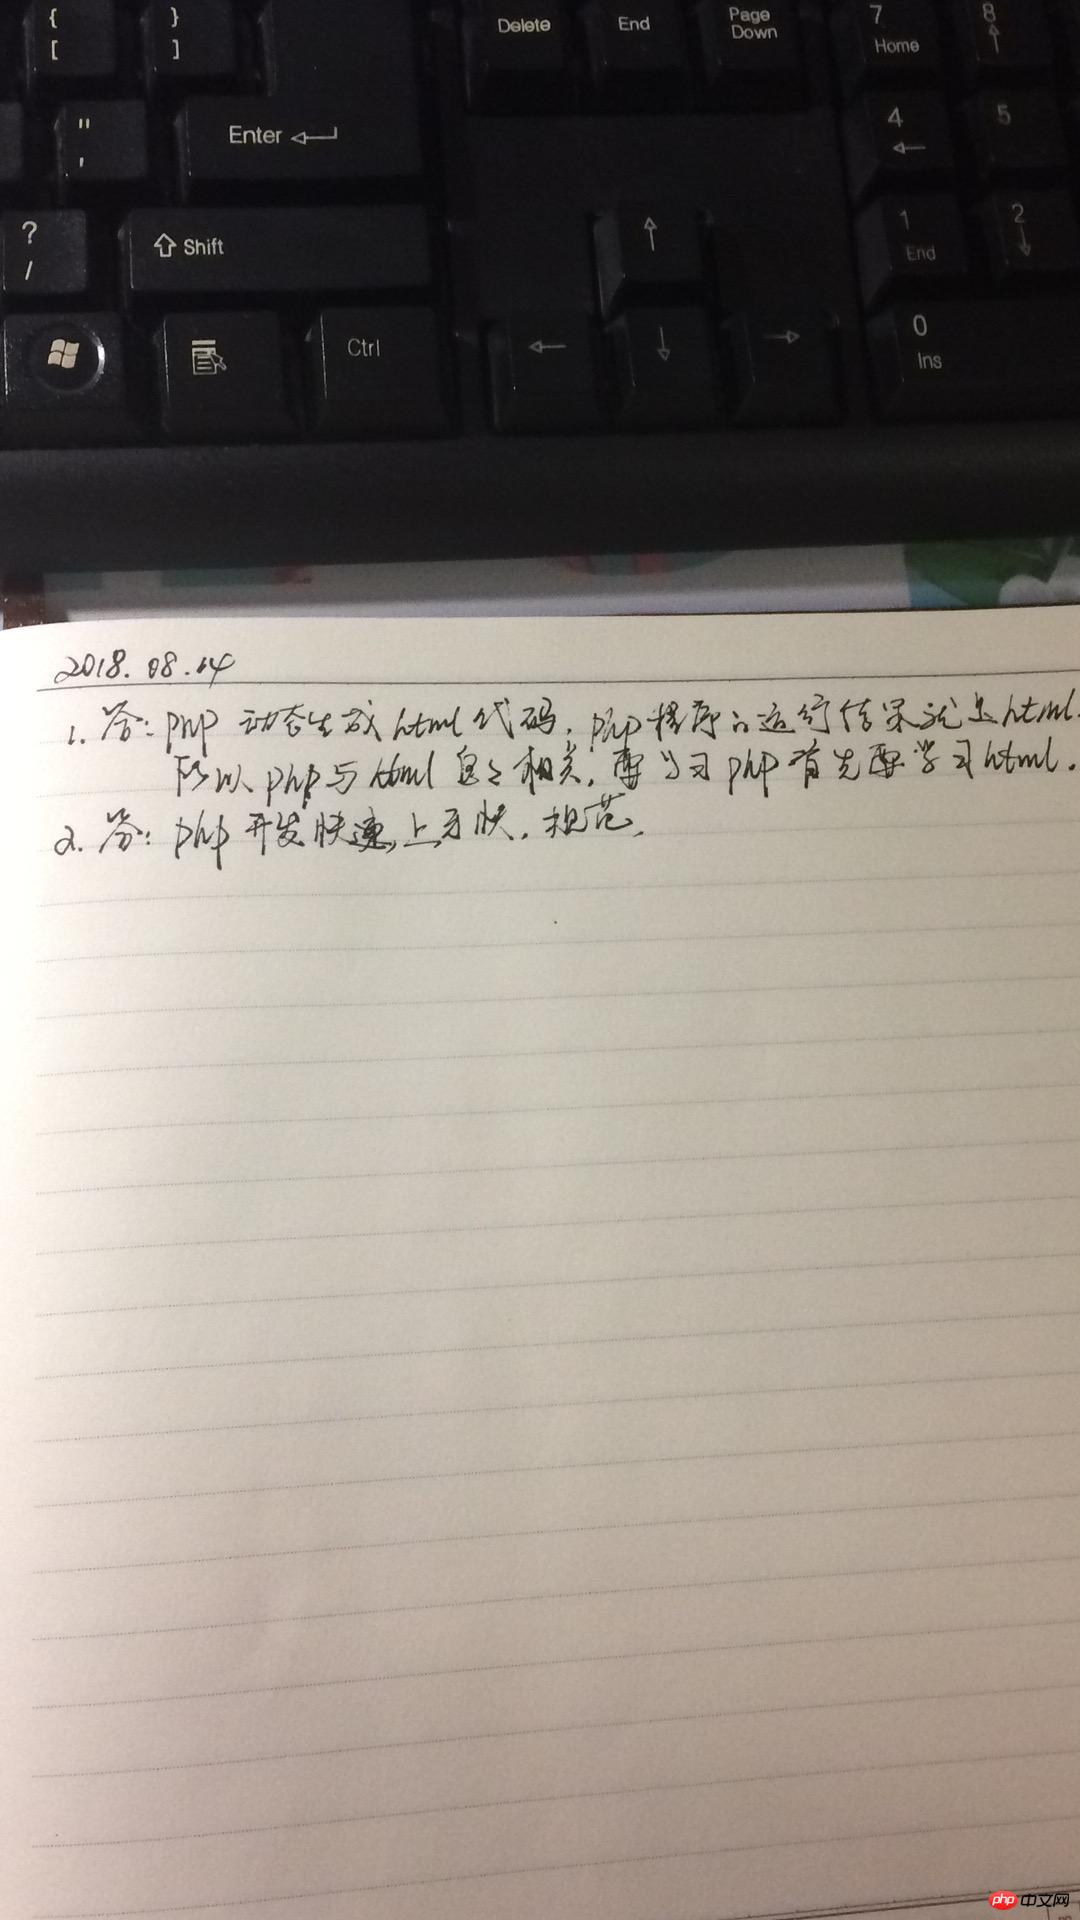 { } Delete End Page Down 7 Home 8
[ ]
" ' Enter 4 5
? / Shift 1 End 2
Ctrl 0 Ins
2018.08.14
1. 答: php 动态生成html代码, php程序的运行结果就是html.
所以php与html息息相关, 要学习php首先要学习html.
2. 答: php开发快速, 上手快, 规范.
php 中文网